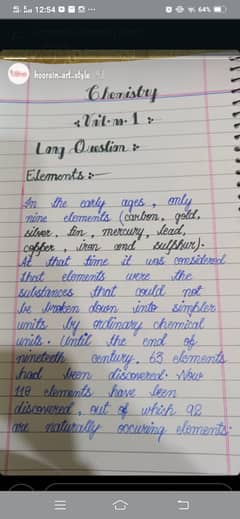 12:54
64%
hoorain_art_style
Chemistry
Unit no 1 :
Long Question :
Elements :
In the early ages, only
nine elements (carbon, gold,
silver, tin, mercury, lead,
copper, iron and sulphur).
At that time it was considered
that elements were the
substances that could not
be broken down into simpler
units by ordinary chemical
units. Until the end of
nineteeth century, 63 elements
had been discovered. Now
118 elements have been
discovered, out of which 92
are naturally occuring elements.